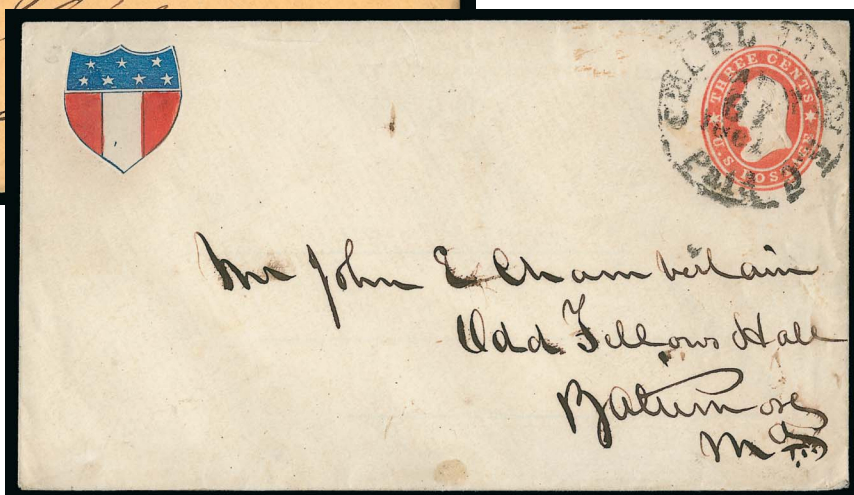 THREE CENTS
U.S. POSTAGE
PAID
Mr John E Chamberlain
Odd Fellows Hall
Baltimore
Md